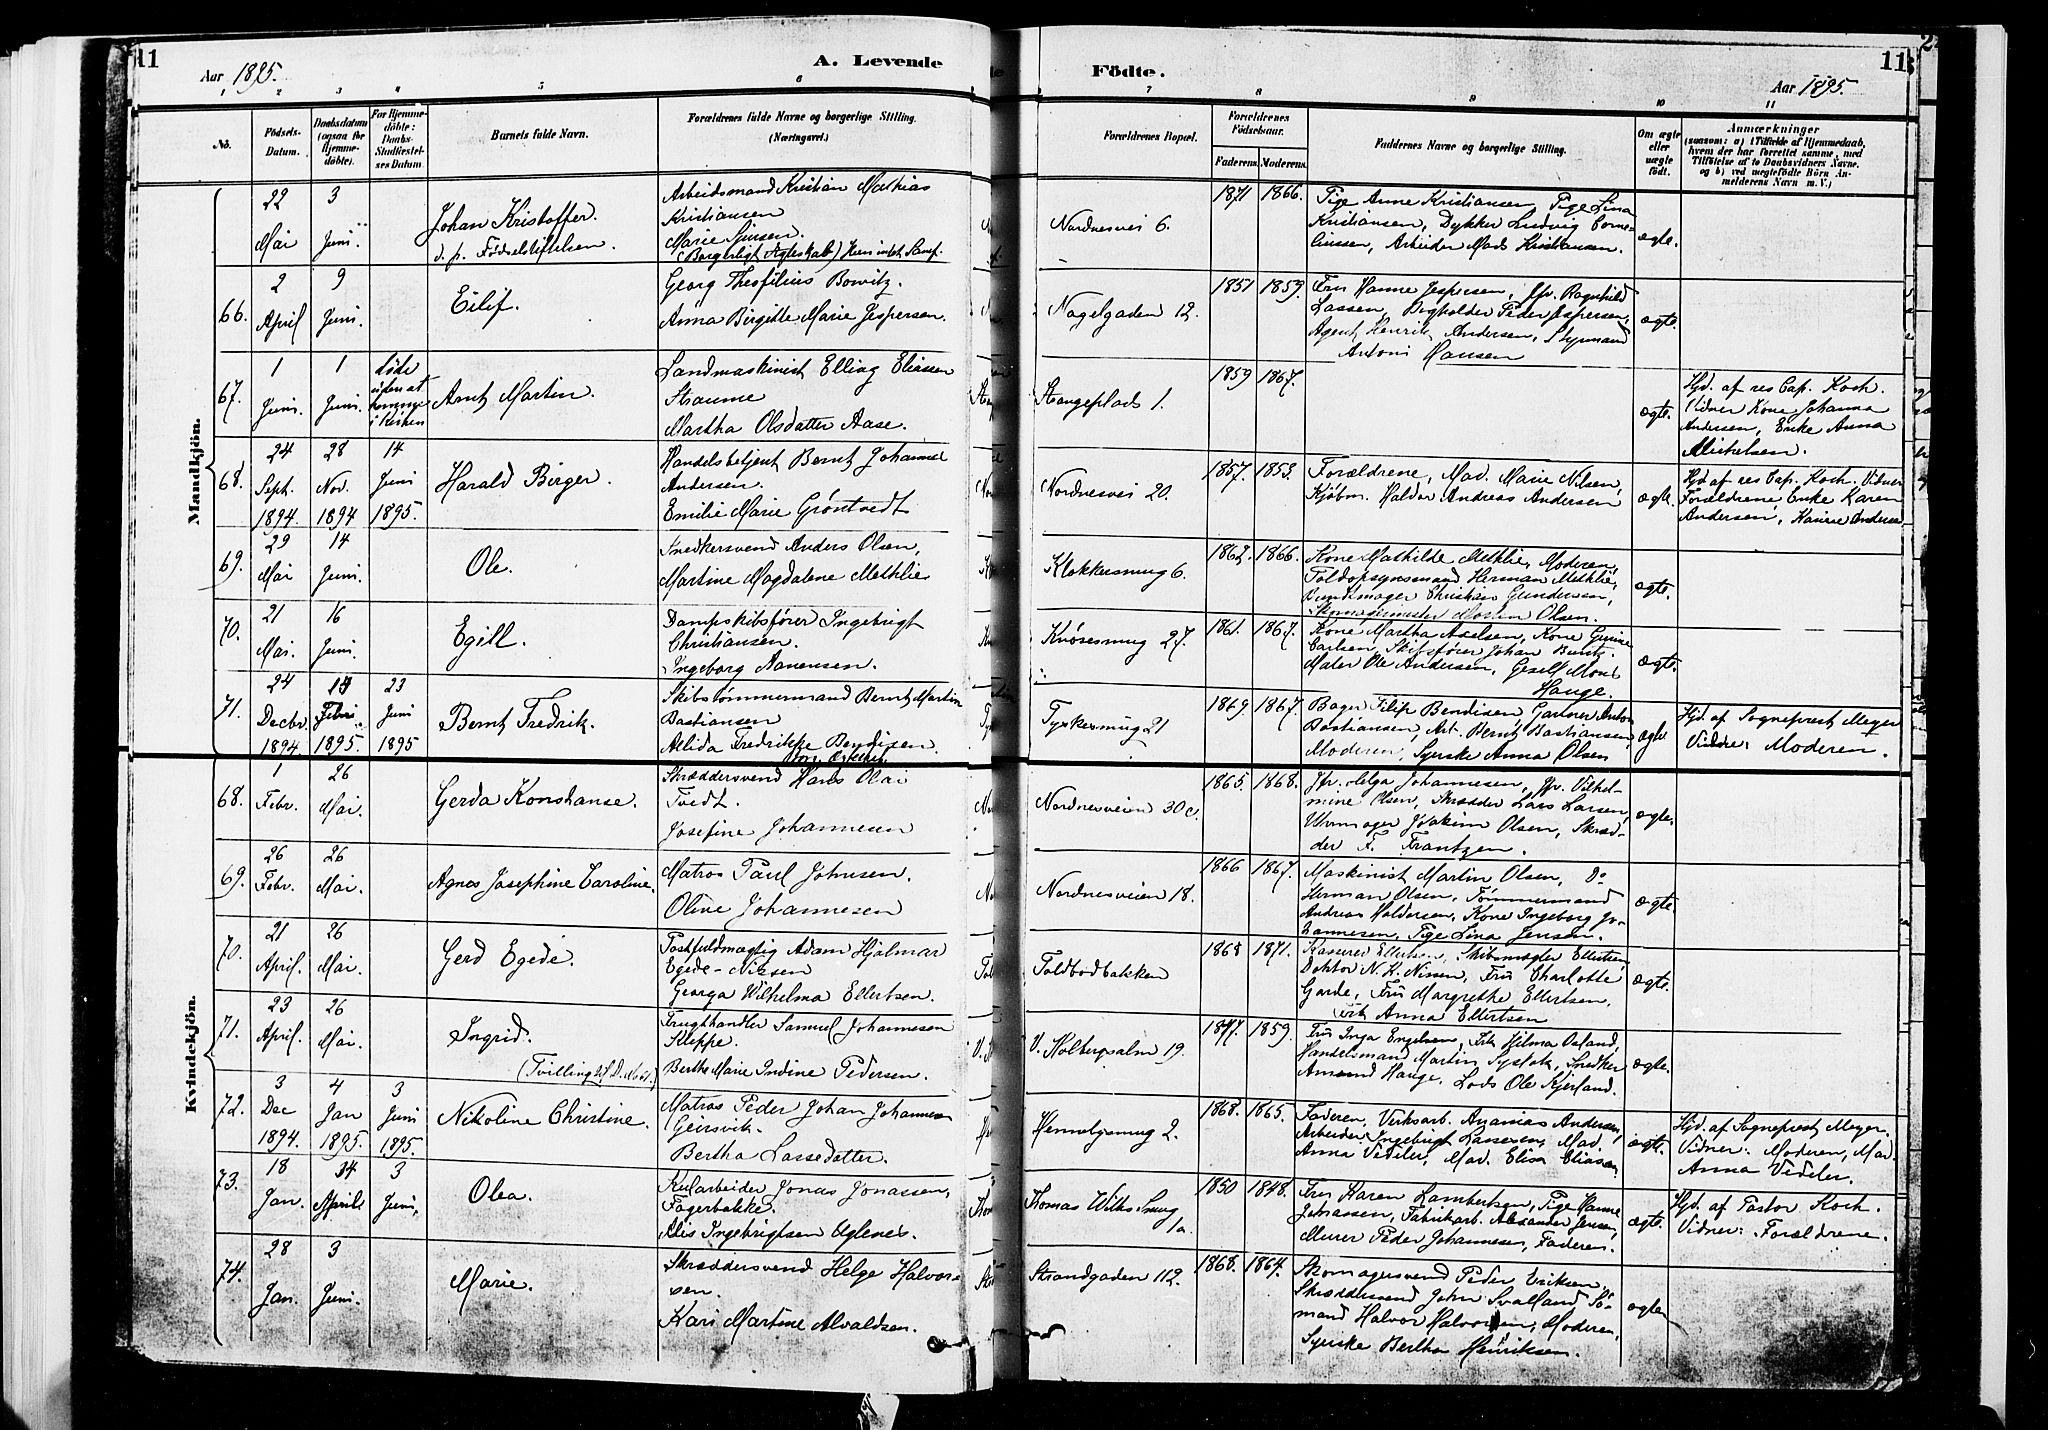 11
Aar 1895.
A. Levende
1 2 3 4 5 6
No.
Födsels-Datum.
Daabsdatum (ogsaa for Hjemme-döbte).
For Hjemme-döbte: Daabs-Stadfæstel-ses Datum
Barnets fulde Navn.
Forældrenes fulde Navne og borgerlige Stilling. (Næringsvei.)
Födte.
Aar 1895.
11
7 8 9 10 11
Forældrenes Bopæl.
Forældrenes Födselsaar.
Faderens. Moderens.
Faddernes Navne og borgerlige Stilling.
Om ægte eller uægte födt.
Anmærkninger
(saasom: a) i Tilfælde af Hjemmedaab,
hvem der har forrettet samme, med
Tilföielse af to Daabsvidners Navne.
og b) ved uegtefödte Börn An-
melderens Navn m. V.)
Mandkjön.
22 Mai
3 Juni
Johan Kristoffer.
d. p. Fødselstiftelsen.
Arbeidsmand Kristian Mathias
Kristiansen
Marie
(Borgerligt Ægteskab)
Nordnesvei 6.
1871 1866.
Pige Anne Kristiansen, Pige Lina
Kristiansen, Dykker Ludvig Corne-
liussen, Arbeider Mads Kristiansen.
ægte.
66.
2 April
9 Juni
Eilif.
Georg Theofilius Bowitz.
Anna Birgitte Marie Jespersen.
Nagelgaden 12.
1851 1859.
Fru Hanne Jespersen, Jfr. Ragnhild
Lassen, Bogholder Peder Jespersen,
Agent Henrik Andersen, Styrmand
Antoni Hansen
ægte.
67.
1 Juni
1 Juni
døde uden at komme i Kirken
Arnt Martin.
Landmaskinist Elling Eliassen
Straume
Martha Olsdatter Aase.
Stangeplads 1.
1859 1867.
ægte.
Hjd. af res Cap. Koch.
Vidner Kone Johanna
Andersen, Enke Anna
Michelsen.
68.
24 Sept. 1894
28 Nov. 1894
14 Juni 1895.
Harald Birger.
Handelsbetjent Bernt Johannes
Andersen.
Emilie Marie Grøntvedt
Nordnesvei 20.
1857. 1853.
Forældrene, Mad. Marie Nilsen,
Kjøbm. Haldor Andreas Andersen
ægte.
Hjd af res Cap. Koch. Vidner
Forældrene Enke Karen
Andersen,
69.
29 Mai
14 Juni.
Ole.
Snedkersvend Anders Olsen,
Martine Magdalene Methlie
Klokkersmug 6.
1862. 1866.
Kone Mathilde Methlie, Moderen,
Toldopsynsmand Herman Methlie,
Bundtmager Christian Gundersen,
Skomagermester Morten Olsen.
ægte.
70.
21 Mai.
16 Juni.
Egill.
Dampskibsfører Ingebrigt
Christiansen.
Ingeborg Aanensen.
Knøsesmug 27.
1861. 1867.
Kone Martha Axelsen, Kone Gurine
Carlsen, Skibsfører Johan Buntz.
Maler Ole Andersen, Gesell Mons
Hauge.
ægte.
71.
24 Decbr. 1894
Febr. 1895.
23 Juni 1895
Bernt Fredrik.
Skibstømmermand Bernt Martin
Bastiansen
Allida Fredrikke Bendixen.
Tyskesmug 21
1869. 1867.
Bager Filip Bendixen, Gartner Anton
Bastiansen, Arb. Bernt Bastiansen,
Moderen, Syerske Anna Olsen
ægte
Hjd. af Sogneprest Meyer
Vidne: Moderen.
Kvindekjön.
68.
1 Febr.
26 Mai.
Gerda Konstanse.
Skræddersvend Hans Olai
Tvedt.
Josefine Johannesen
Nordnesveien 30c.
1865. 1868.
Jfr. Helga Johannesen, Jfr. Vilhel-
mine Olsen, Skrædder Lars Larsen,
Uhrmager Joakim Olsen, Skræd-
der F. Frantzen.
ægte.
69.
26 Febr.
26 Mai.
Agnes Josephine Caroline.
Matros Paul Johnsen.
Oline Johannesen
Nordnesveien 18.
1866 1867.
Maskinist Martin Olsen, Do
Herman Olsen, Tømmermand
Andreas Haldorsen, Kone Ingeborg Jo-
hannesen, Pige Lina Jensen.
ægte.
70.
21 April.
26 Mai.
Gerd Egede.
Postfuldmægtig Adam Hjalmar
Egede-Nissen
Georga Wilhelma Ellertsen.
Toldbodbakken
1868 1871.
Kasserer Ellertsen, Skibsmægler Ellertsen,
Doktor N. K. Nissen, Fru Charlotte
Garde, Fru Margrethe Ellertsen,
Frk Anna Ellertsen
ægte.
71.
23 April.
26 Mai.
Ingrid.
(Tvilling
Frugthandler Samuel Johannesen
Kleppe.
Berthe Marie Indine Pedersen.
V. Holbergsalm. 19.
1847. 1859.
Fru Inga Engelsen, Frk Hjelma Osland,
Handelsmand Martin Systak, Snedker
Amund Hauge, Lods Ole Kjerland.
ægte.
72.
3 Dec 1894.
4 Jan 1895.
3 Juni 1895.
Nikoline Christine.
Matros Peder Johan Johannesen
Geirsvik.
Bertha Lassedatter.
2.
1868. 1865.
Faderen, Verksarb. Ananias Andersen,
Arbeider Ingebrigt Lassesen, Mad.
Anna Vedeler, Mad. Elisa Eliasen
ægte.
Hjd. af Sogneprest Meyer.
Vidner: Moderen, Mad.
Anna Vedeler.
73.
18 Jan.
April
3 Juni,
Olea.
Kularbeider Jonas Jonassen,
Fagerbakke.
Alis Ingebrigtsen Uglenes.
Thomas Wilks Smug
1a.
1850 1848.
Fru Karen Lambertsen, Pige Hanne
Johnassen, Fabrikarb. Alexander Jensen,
Murer Peder Johannesen, Faderen.
ægte.
Hjd. af Pastor Koch.
Vidner: Forældrene.
74.
28 Jan.
3 Juni.
Marie.
Skræddersvend Helge Halvor-
sen.
Kari Martine Alvaldsen.
Strandgaden 112.
1868. 1864.
Skomagersvend Peder Eriksen,
Skræddersvend John Svalland, Sø-
mand Halvor Halvorsen, Moderen,
Syerske Bertha Henriksen.
ægte